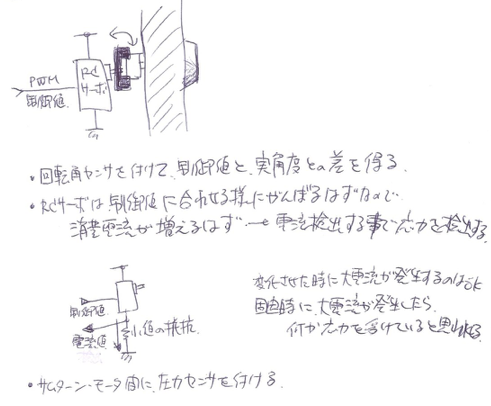 PWM
制御値
RC
サーボ
・回転角センサを付けて、制御値と、実角度との差を得る.
・RCサーボは、制御値に合わせる様にがんばるはずなので
消費電流が増えるはず. → 電流検出する事で応力を検出する.
変化させた時に大電流が発生するのは
固定時に大電流が発生したら、
何か応力を受けていると思われる.
制御値
電流値
小値の抵抗
・サムターン・モータ間に、圧力センサを付ける.